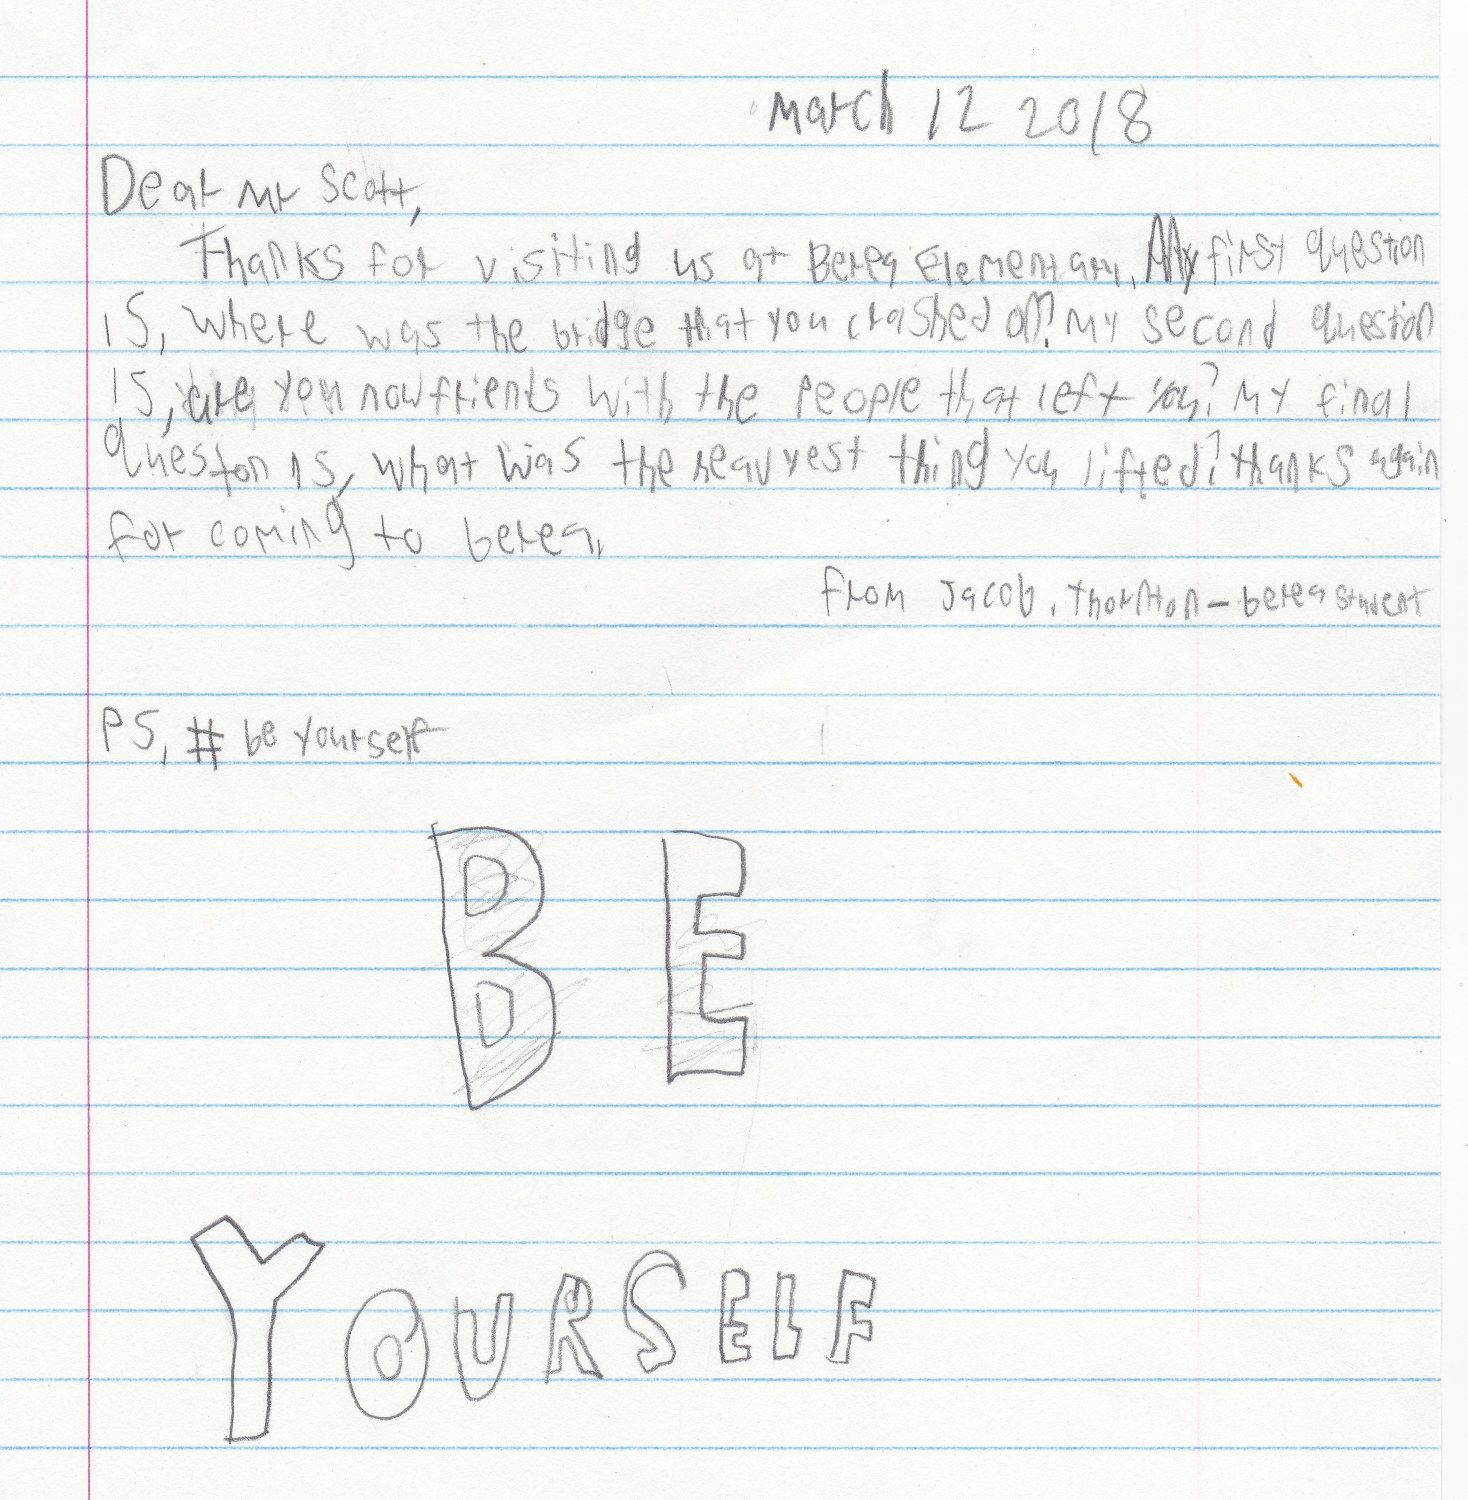 March 12 2018
Dear Mr Scott,
Thanks for visiting us at Berea Elementary. My first question
is, where was the bridge that you crashed off? My second question
is, are you now frients with the people that left you? My final
queston is, what was the heavyest thing you lifted? thanks again
for coming to berea.
from Jacob. Thornton - berea student
PS, # be yourself
BE
YOURSELF